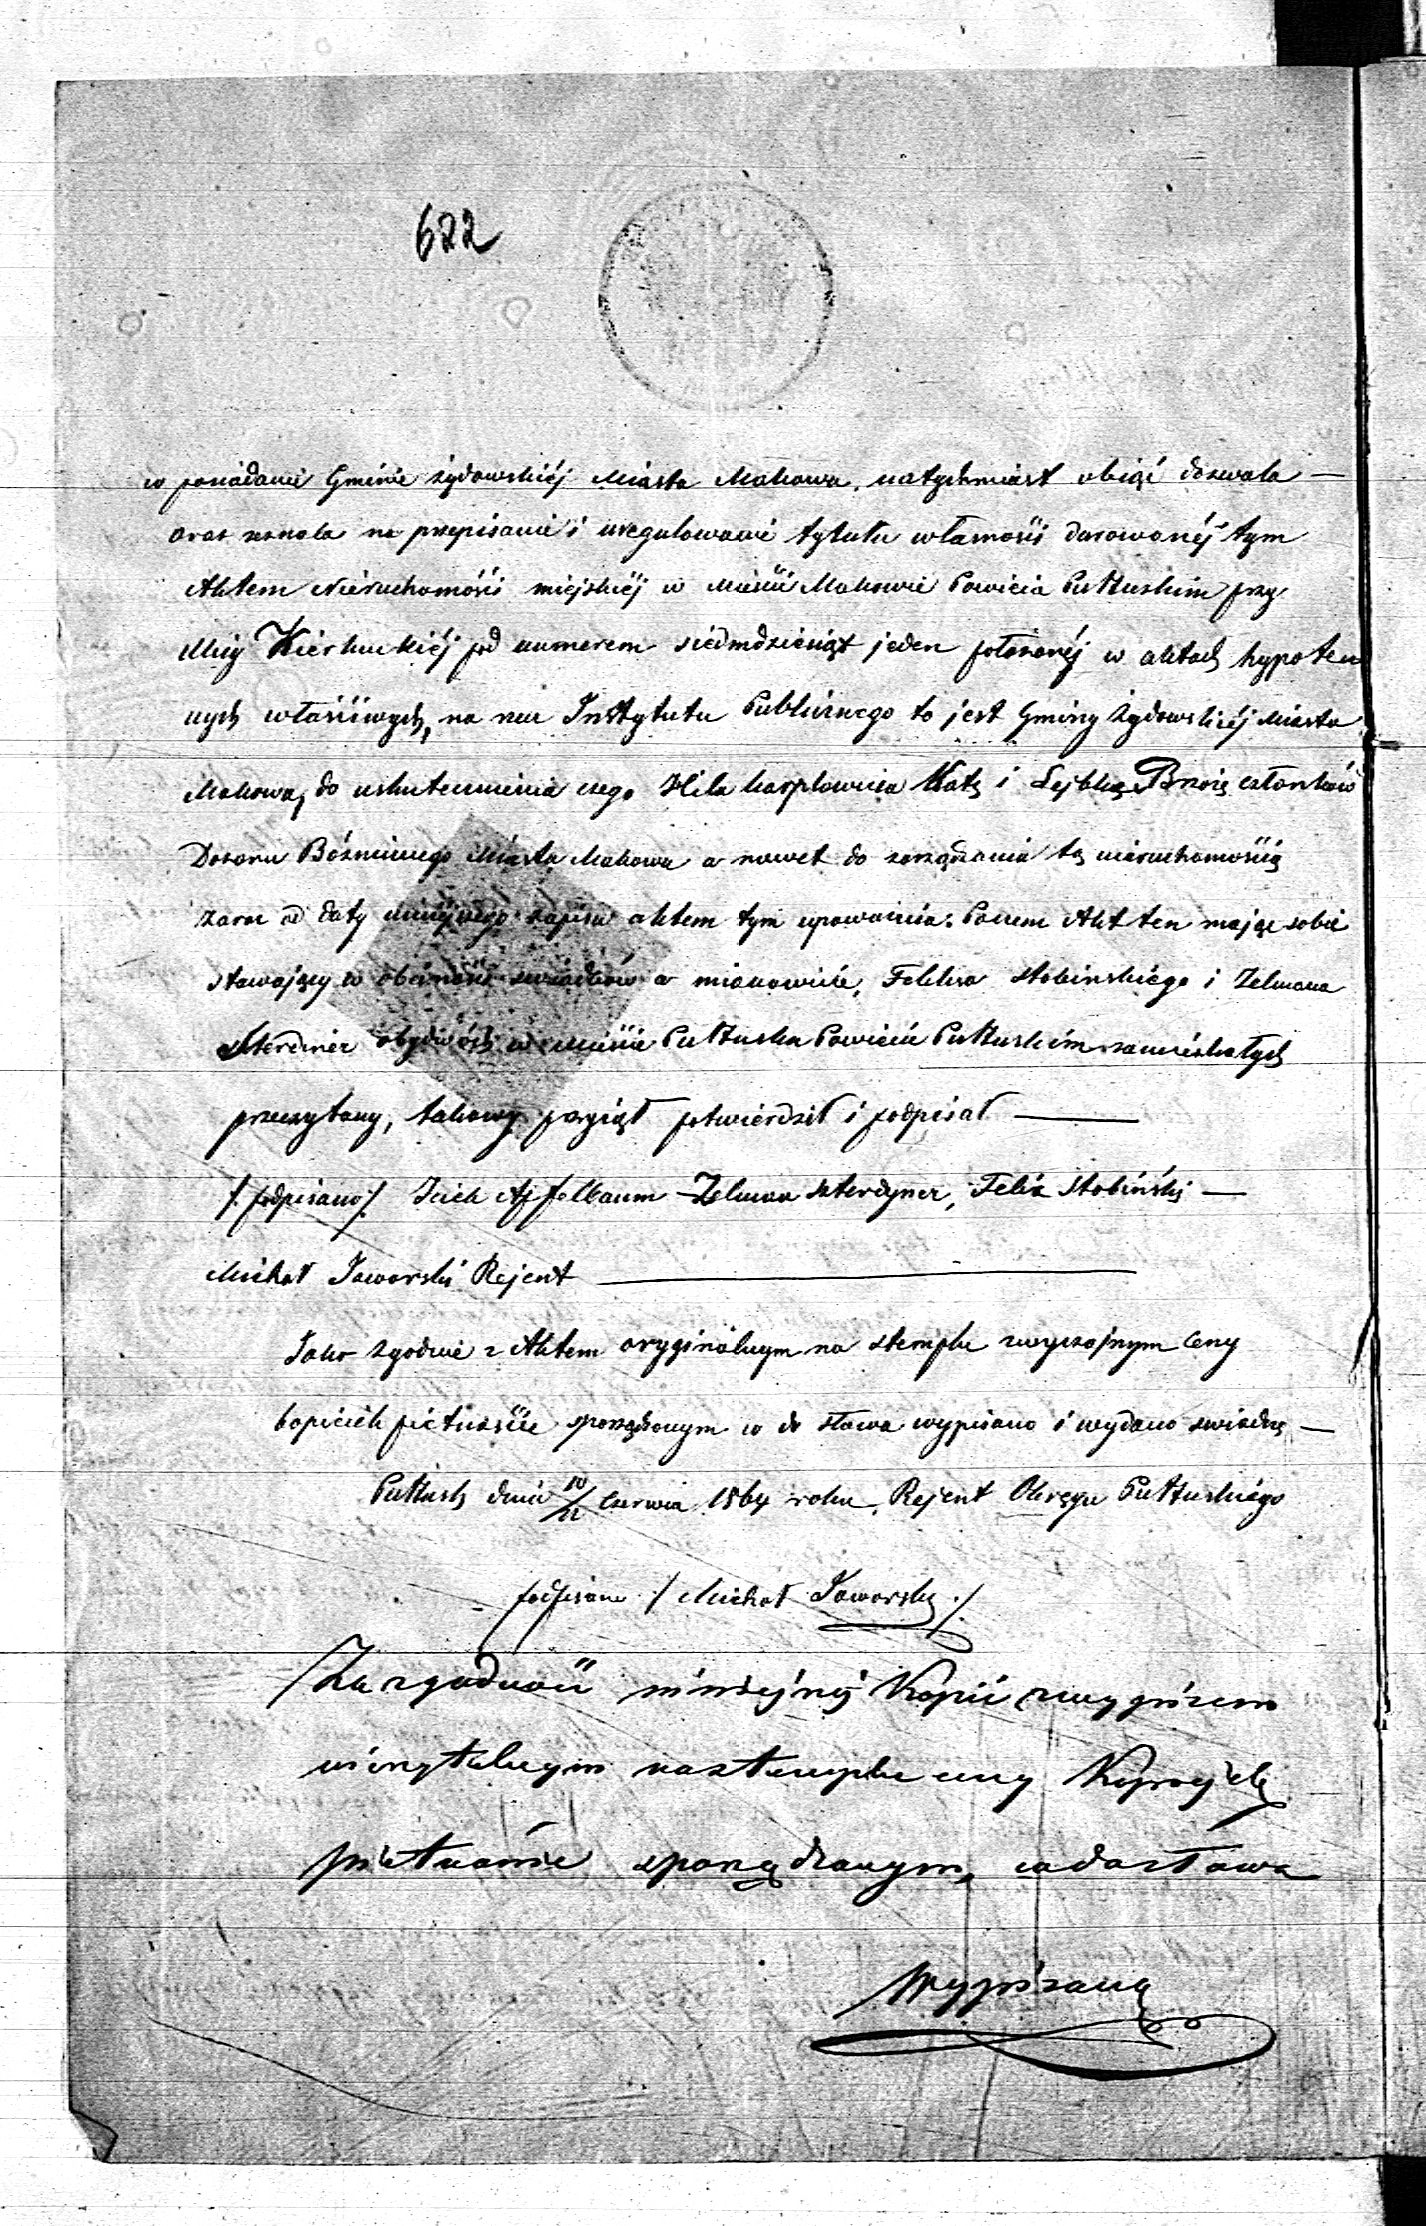 622
w posiadanie Gminie żydowskiéj Miasta Makowa, natychmiast objąć dozwala —
oraz zezwala na przepisanie i uregulowanie tytułu własności darowanéj tym
Aktem Nieruchomości miejskiéj w Mieście Makowie Powiecie Pułtuskim przy
Ulicy pod numerem siedmdziesiąt jeden położonéj w aktach hypotecz
nych właściwych, na rzecz Instytutu Publicznego to jest Gminy Żydowskiéj Miasta
Makowa, do uskutecznienia czego Hila Karplowicza Katz i Lejbkę członków
Dozoru Bóżniczego Miasta Makowa a nawet do zarządzania tą nieruchomością
zaraz od daty niniejszego zapisu aktem tym upoważnia. Poczem Akt ten mając sobie
stawający w obecności świadków a mianowicie, Felixa Stobinskiego i Zelmana
Sterdiner obydwóch w Mieście Pułtusku Powiecie Pułtuskim zamieszkałych
przeczytany, takowy przyjął potwierdził i podpisał —
/. podpisano /. Icick Apfelbaum Zelman Szterdyner, Felix Stobiński —
Michał Jaworski Rejent —
Jako zgodnie z Aktem oryginalnym na stemplu zwyczajnym Ceny
kopiejek piętnaście sporządzonym w do słowa wypisano i wydano świadczę —
Pułtusk dnia 10/22 Czerwca 1864 roku. Rejent Okręgu Pułtuskiego
podpisano / Michał Jaworski ./
Za zgodność niniejszéj Kopii z wypisem
na stemplu ceny Kopiejek
piętnaście sporządzonym, co do słowa
Wypisaną